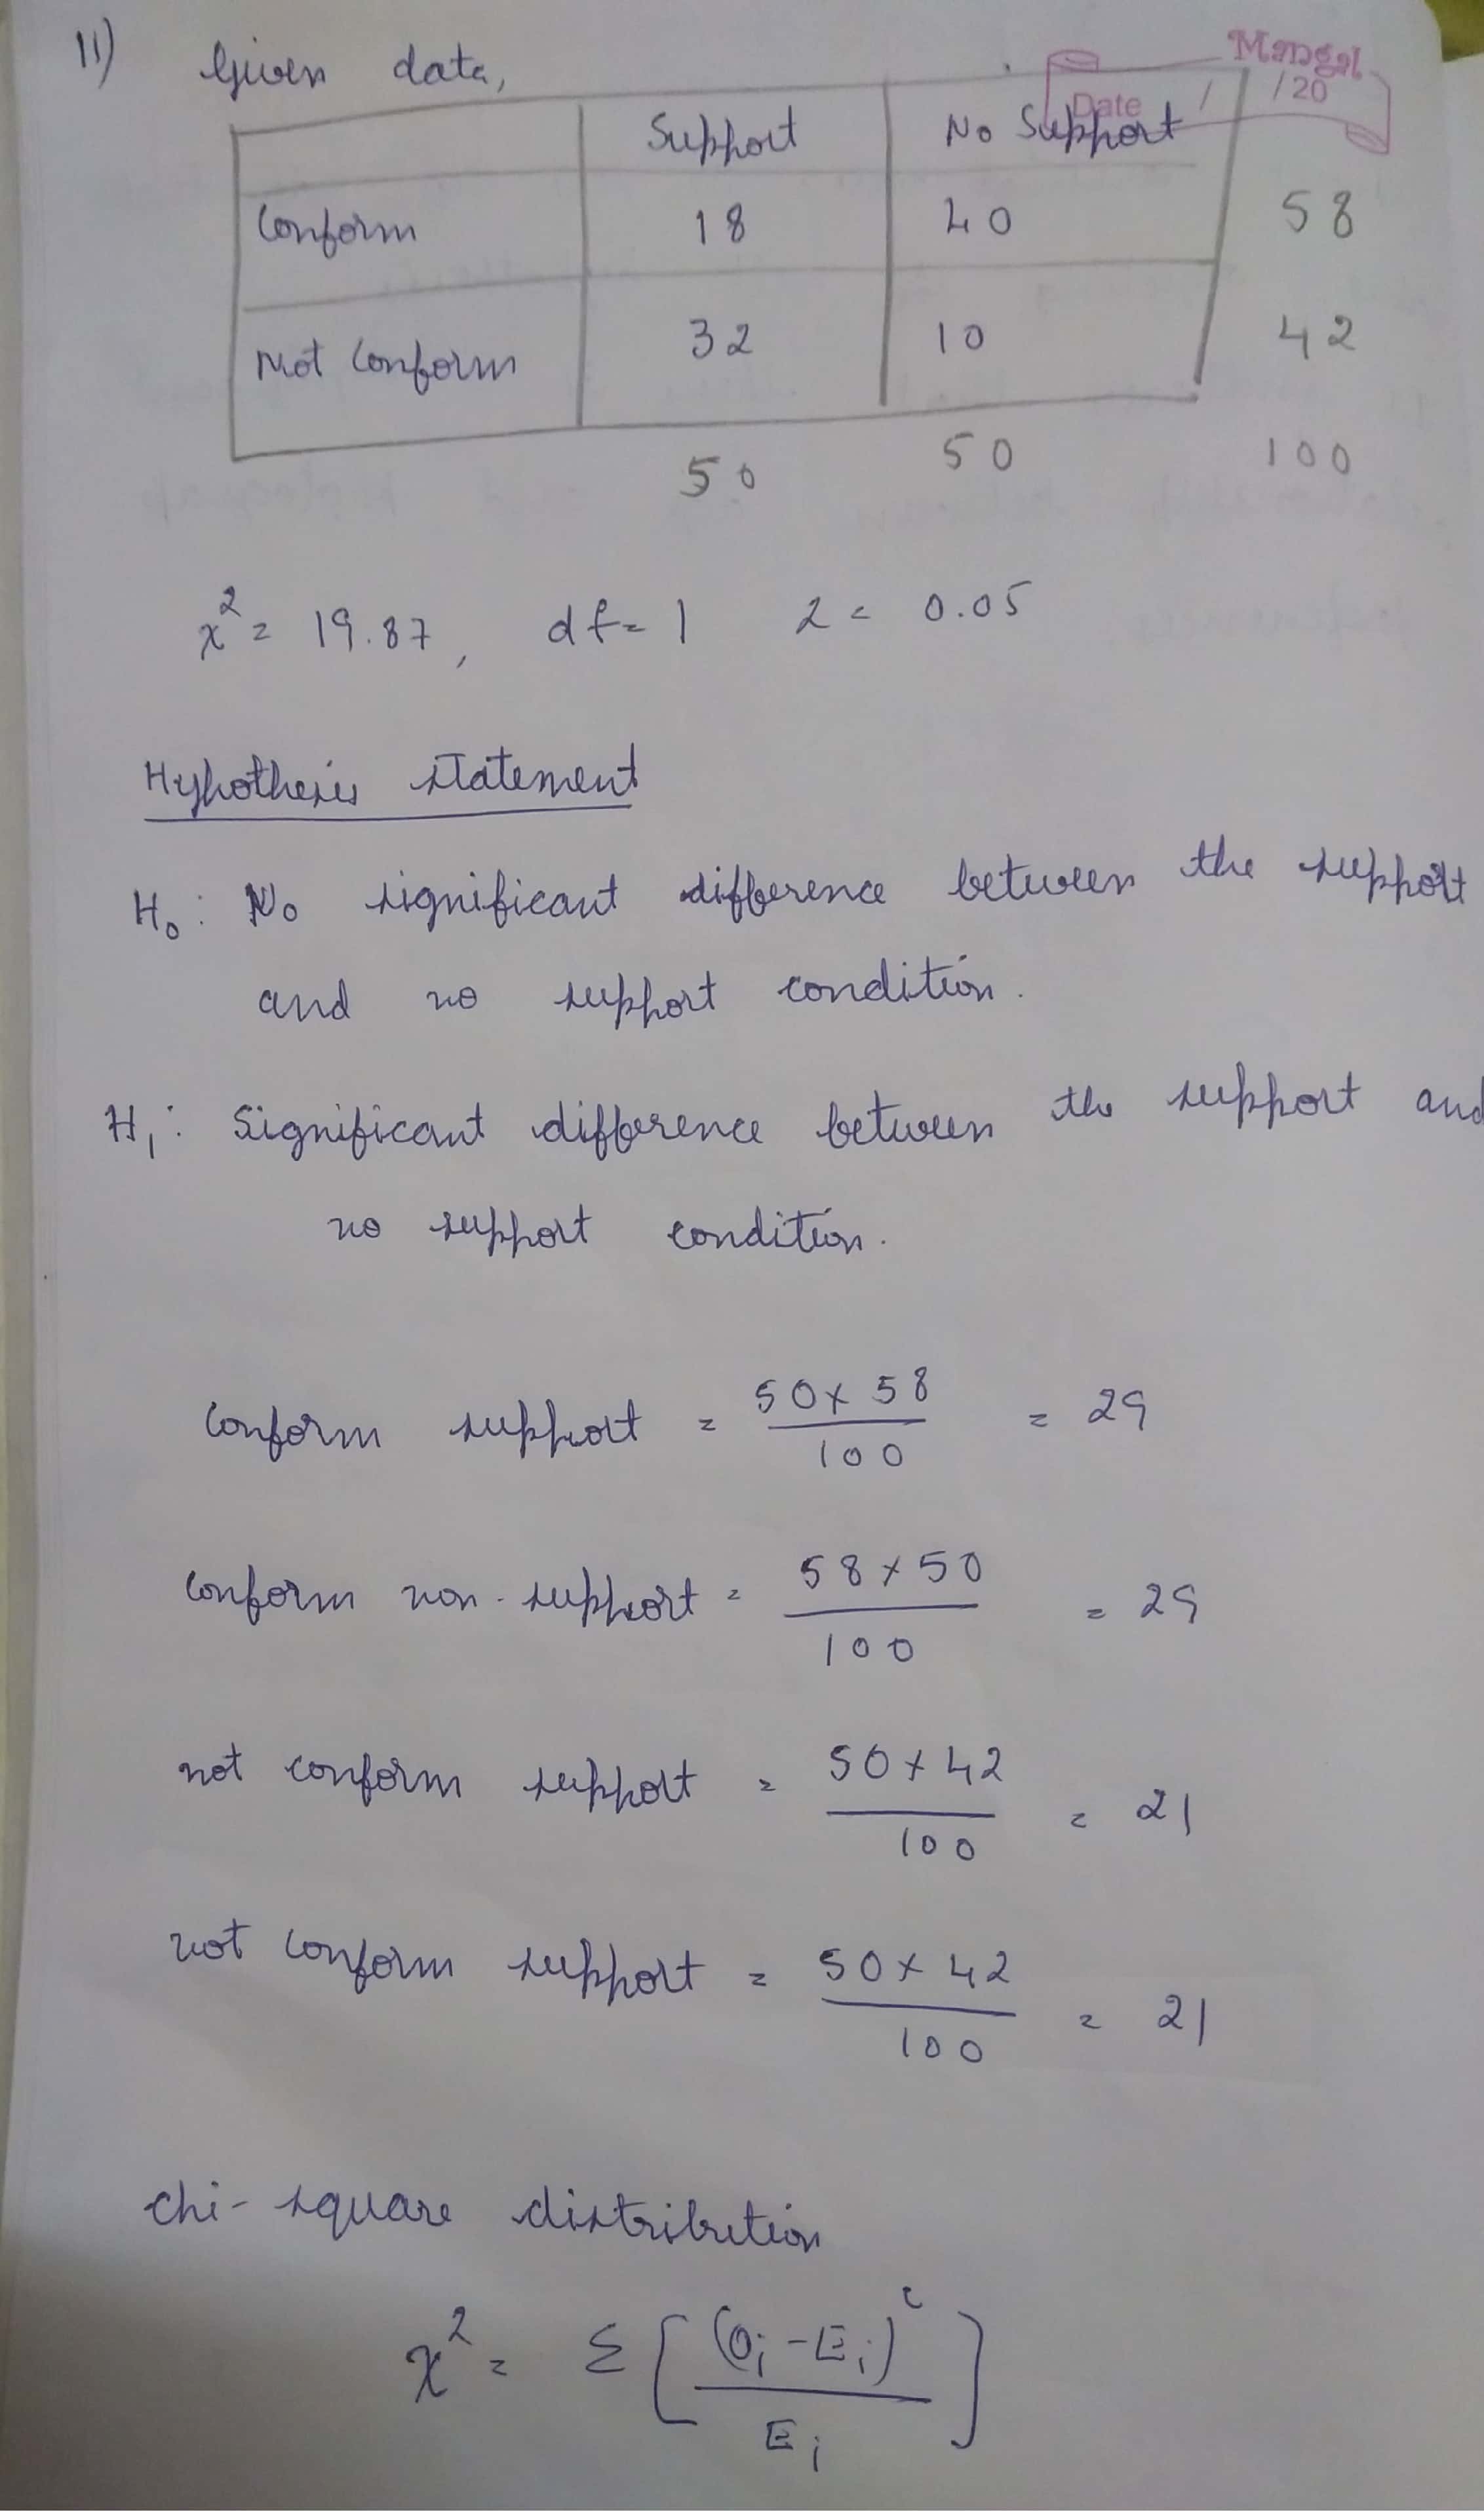 11) Given data,
Mangal
Date / /20
Support No Support
Conform 18 40 58
Not Conform 32 10 42
50 50 100
x² = 19.87, df = 1 α = 0.05
Hypothesis statement
H₀ : No significant difference between the support
and no support condition.
H₁ : Significant difference between the support and
no support condition.
Conform support = 50 x 58 / 100 = 29
Conform non-support = 58 x 50 / 100 = 29
not conform support = 50 x 42 / 100 = 21
not conform support = 50 x 42 / 100 = 21
chi-square distribution
χ² = Σ [ (Oi - Ei)² / Ei ]